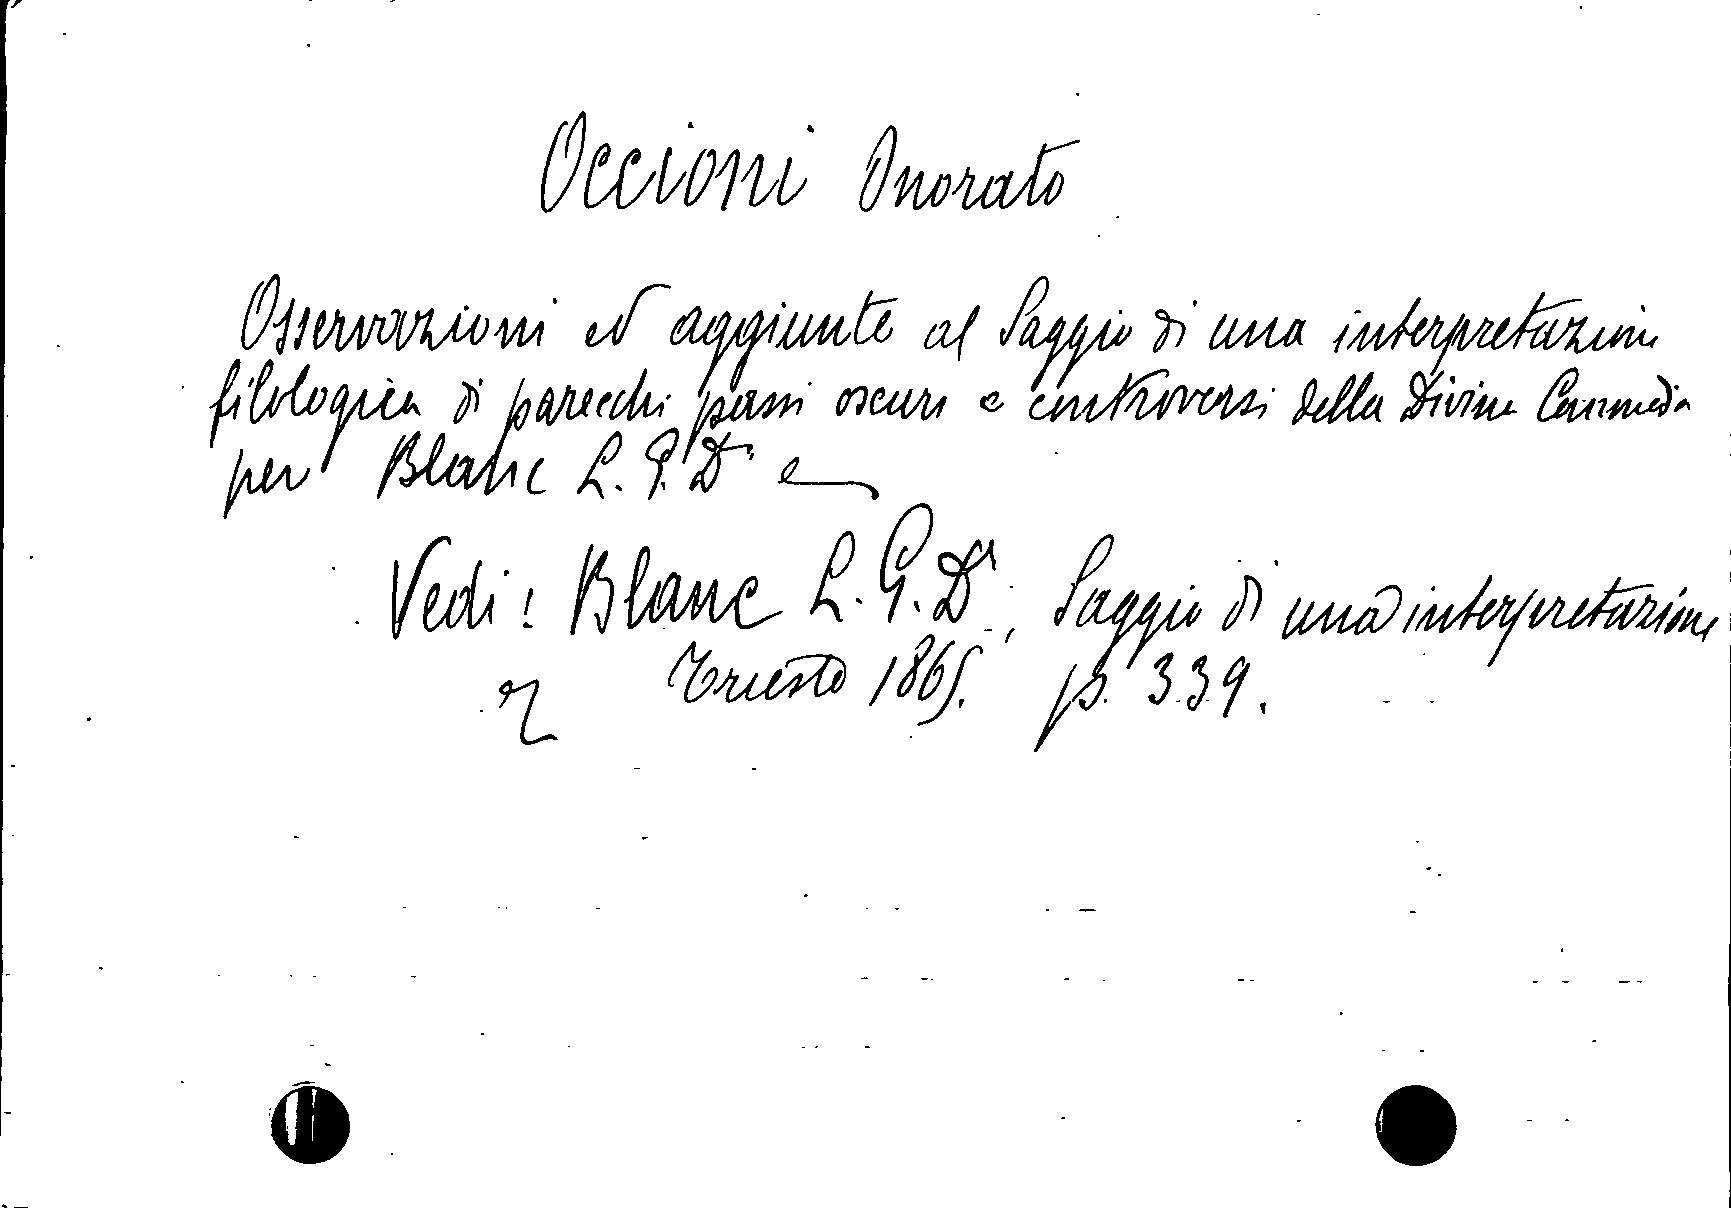 Occioni Onorato
Osservazioni ed aggiunte al Saggio di una interpretazione
filologica di parecchi passi oscuri e controversi della Divina Commedia
per Blanc L. G. D.r
Vedi: Blanc L. G. D.r, Saggio di una interpretazione
Trieste 1865. p. 339.